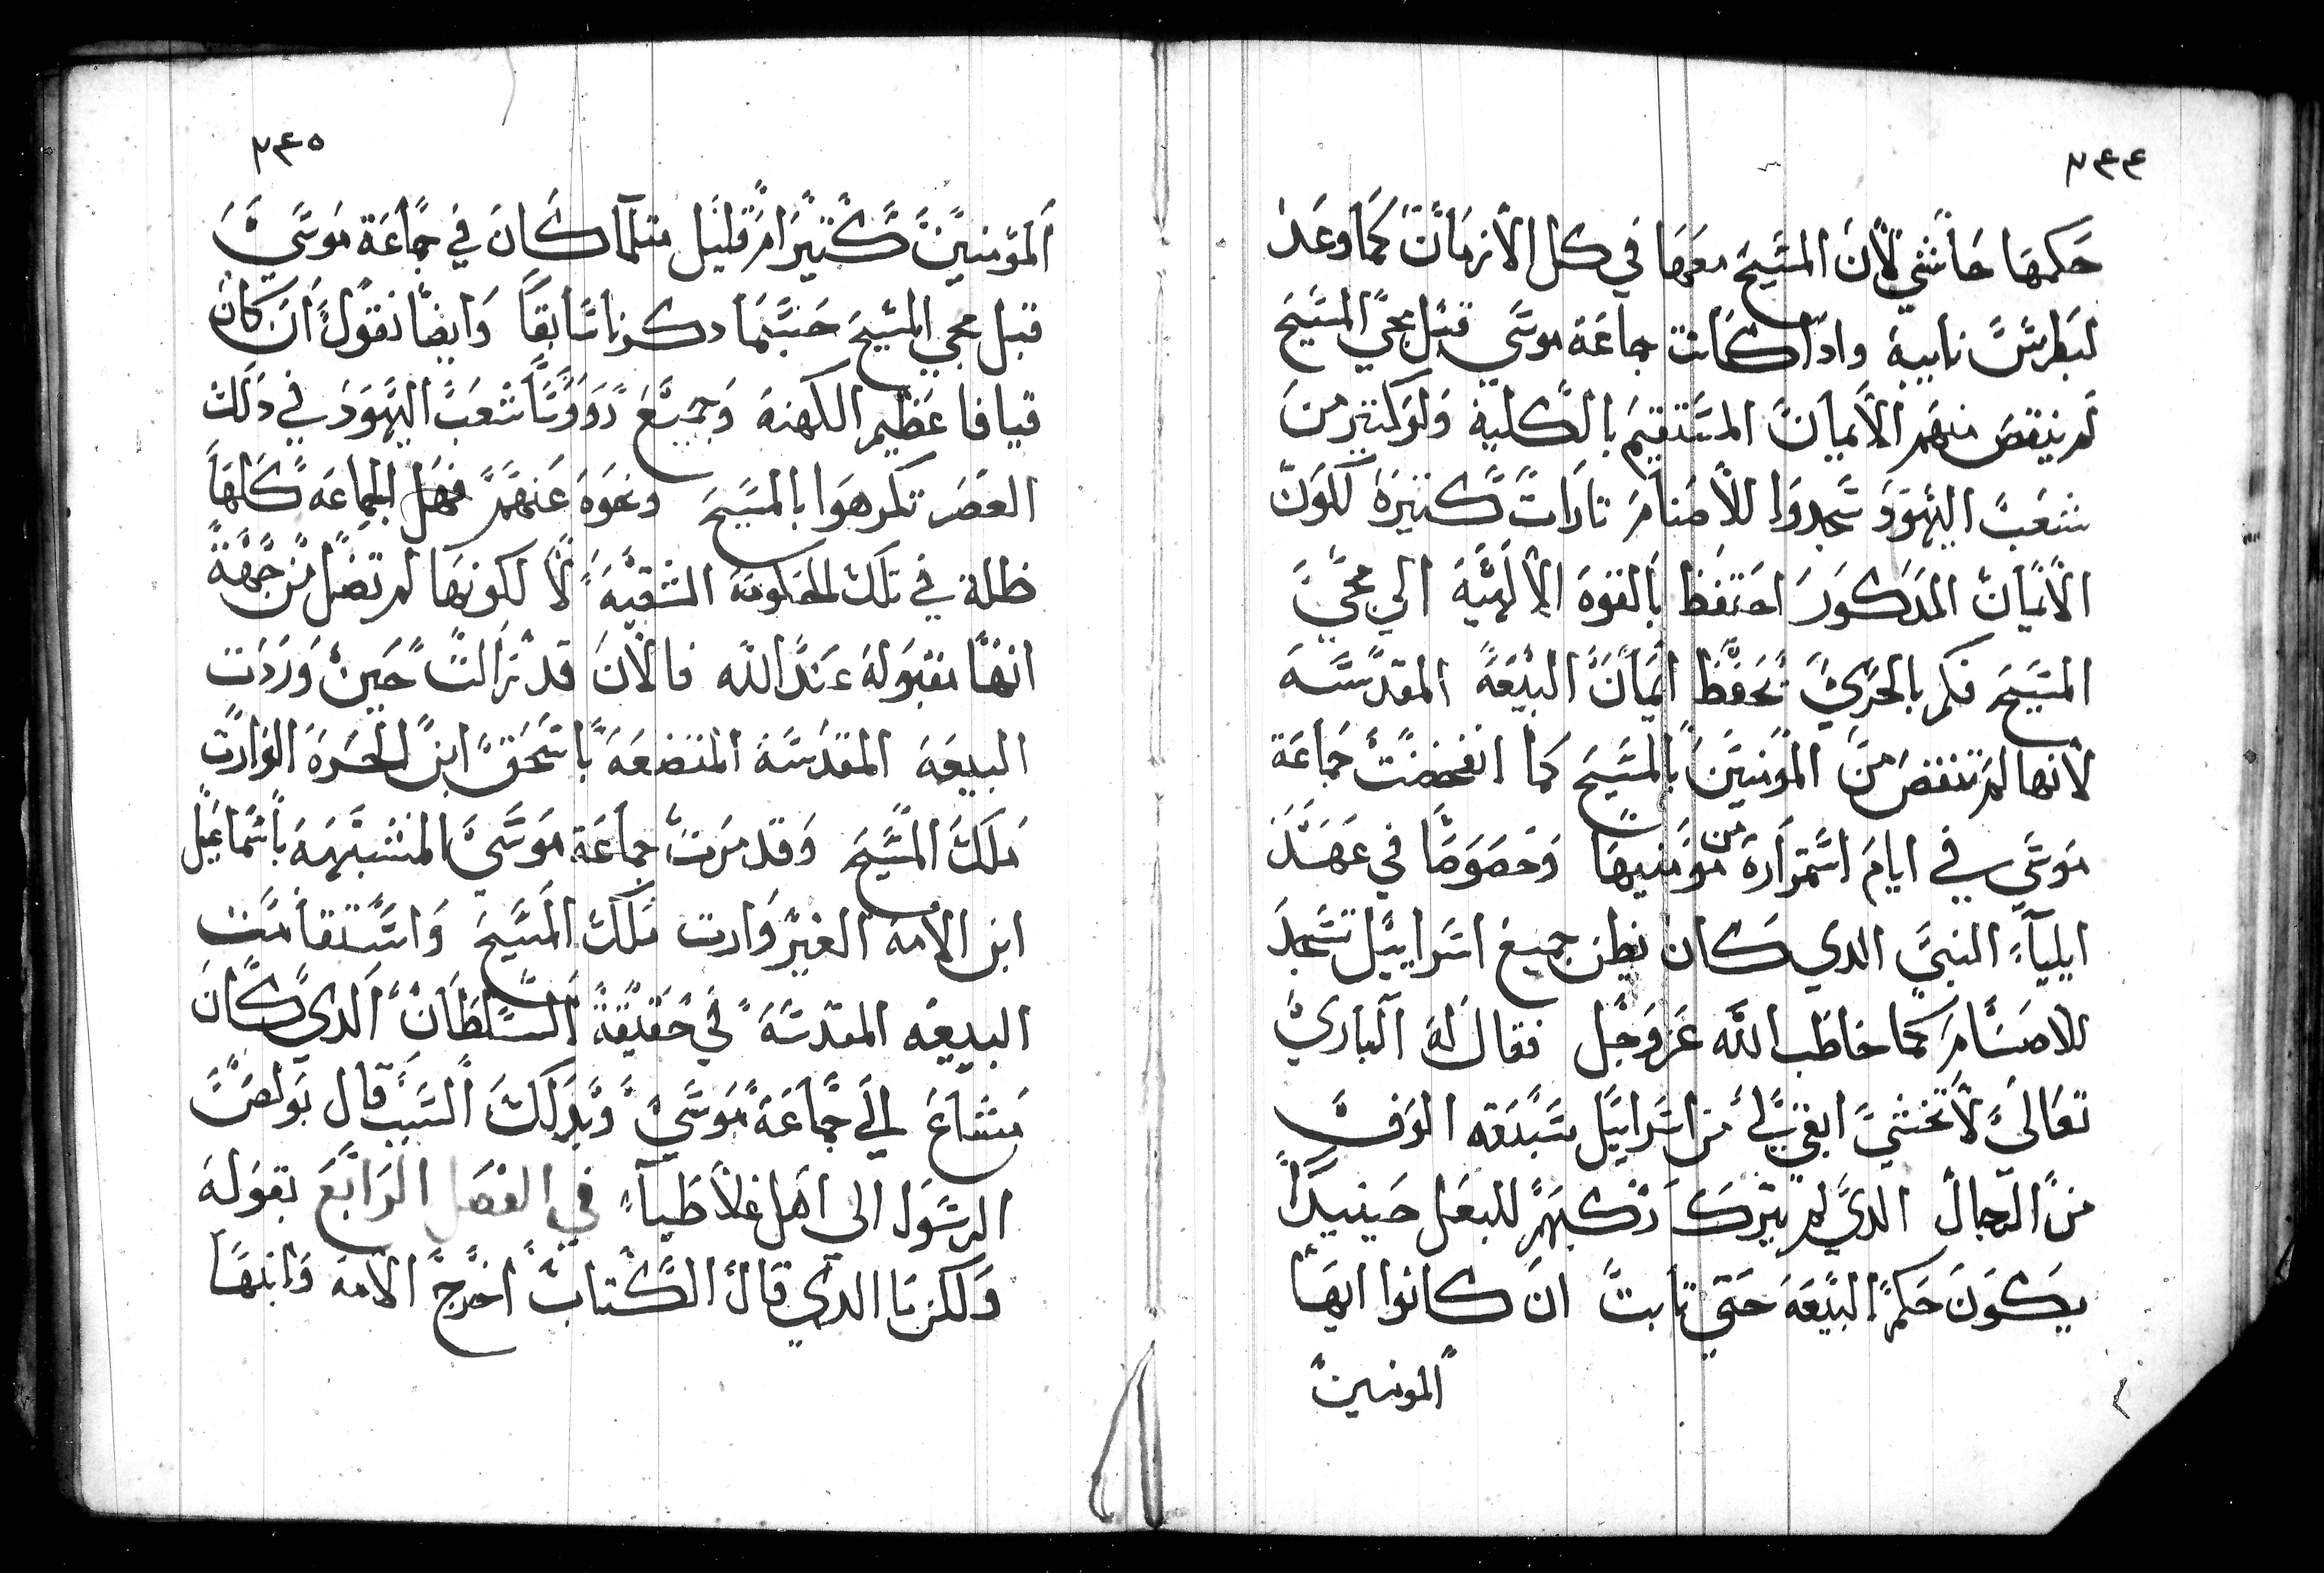 ٢٤٤
حكمها حاشي لان المسيح معها في كل الازمان كما وعد
لبطرس نايبه وادا كانت جماعة موسي قبل مجي المسيح
لم ينقص منهم الايمان المستقيم بالكلية ولو كتير من
شعب اليهود سجدوا للاصنام تارات كتيرة لكون
الايمان المدكور احتفظ بالقوه الالهيه الي مجي
المسيح فكم بالحري تحفظ ايمان البيعة المقدسه
لانها لم تنقص من المومنين بالمسيح كما انخفضت جماعة
موسي في ايام استمراره من مومنيها وخصوصا في عهد
ايلياء النبي الدي كان يظن جميع اسراييل تسجد
للاصنام كما خاطب الله عز وجل فقال له الباري
تعالي لا تخشي ابقي لي من اسراييل سبعه الوف
من الرجال الدي لم تبرك ركبهم للبعل حينيدا
يكون حكم البيعه حتي تابت ان كانوا ايها
المومنين
٢٤٥
المومنين كتيرا م قليل متلما كان في جماعة موسي
قبل مجي المسيح حسبما دكرنا سابقا وايضا نقول ان كان
قيافا عظيم الكهنه وجميع رووسا شعب اليهود في دلك
العصر تكرهوا بالمسيح ونحوه عنهم فهل الجماعه كلها
ظله في تلك الحكومة الشقيه لا لكونها لم تضل من جهة
انها مقبوله عند الله فالان قد زالت حين وردت
البيعه المقدسه المتضعه باسحق ابن الحره الوارت
ملك المسيح وقد مرت جماعة موسي المتشبهه باسماعيل
ابن الامه الغير وارت ملك المسيح واستقامت
البيعه المقدسه في حقيقة السلطان الدي كان
مشاع الي جماعة موسي وبدلك السبب قال بولص
الرسول الى اهل غلاطياء في الفصل الرابع بقوله
ولكن ما الدي قال الكتاب اخرج الامه وابنها